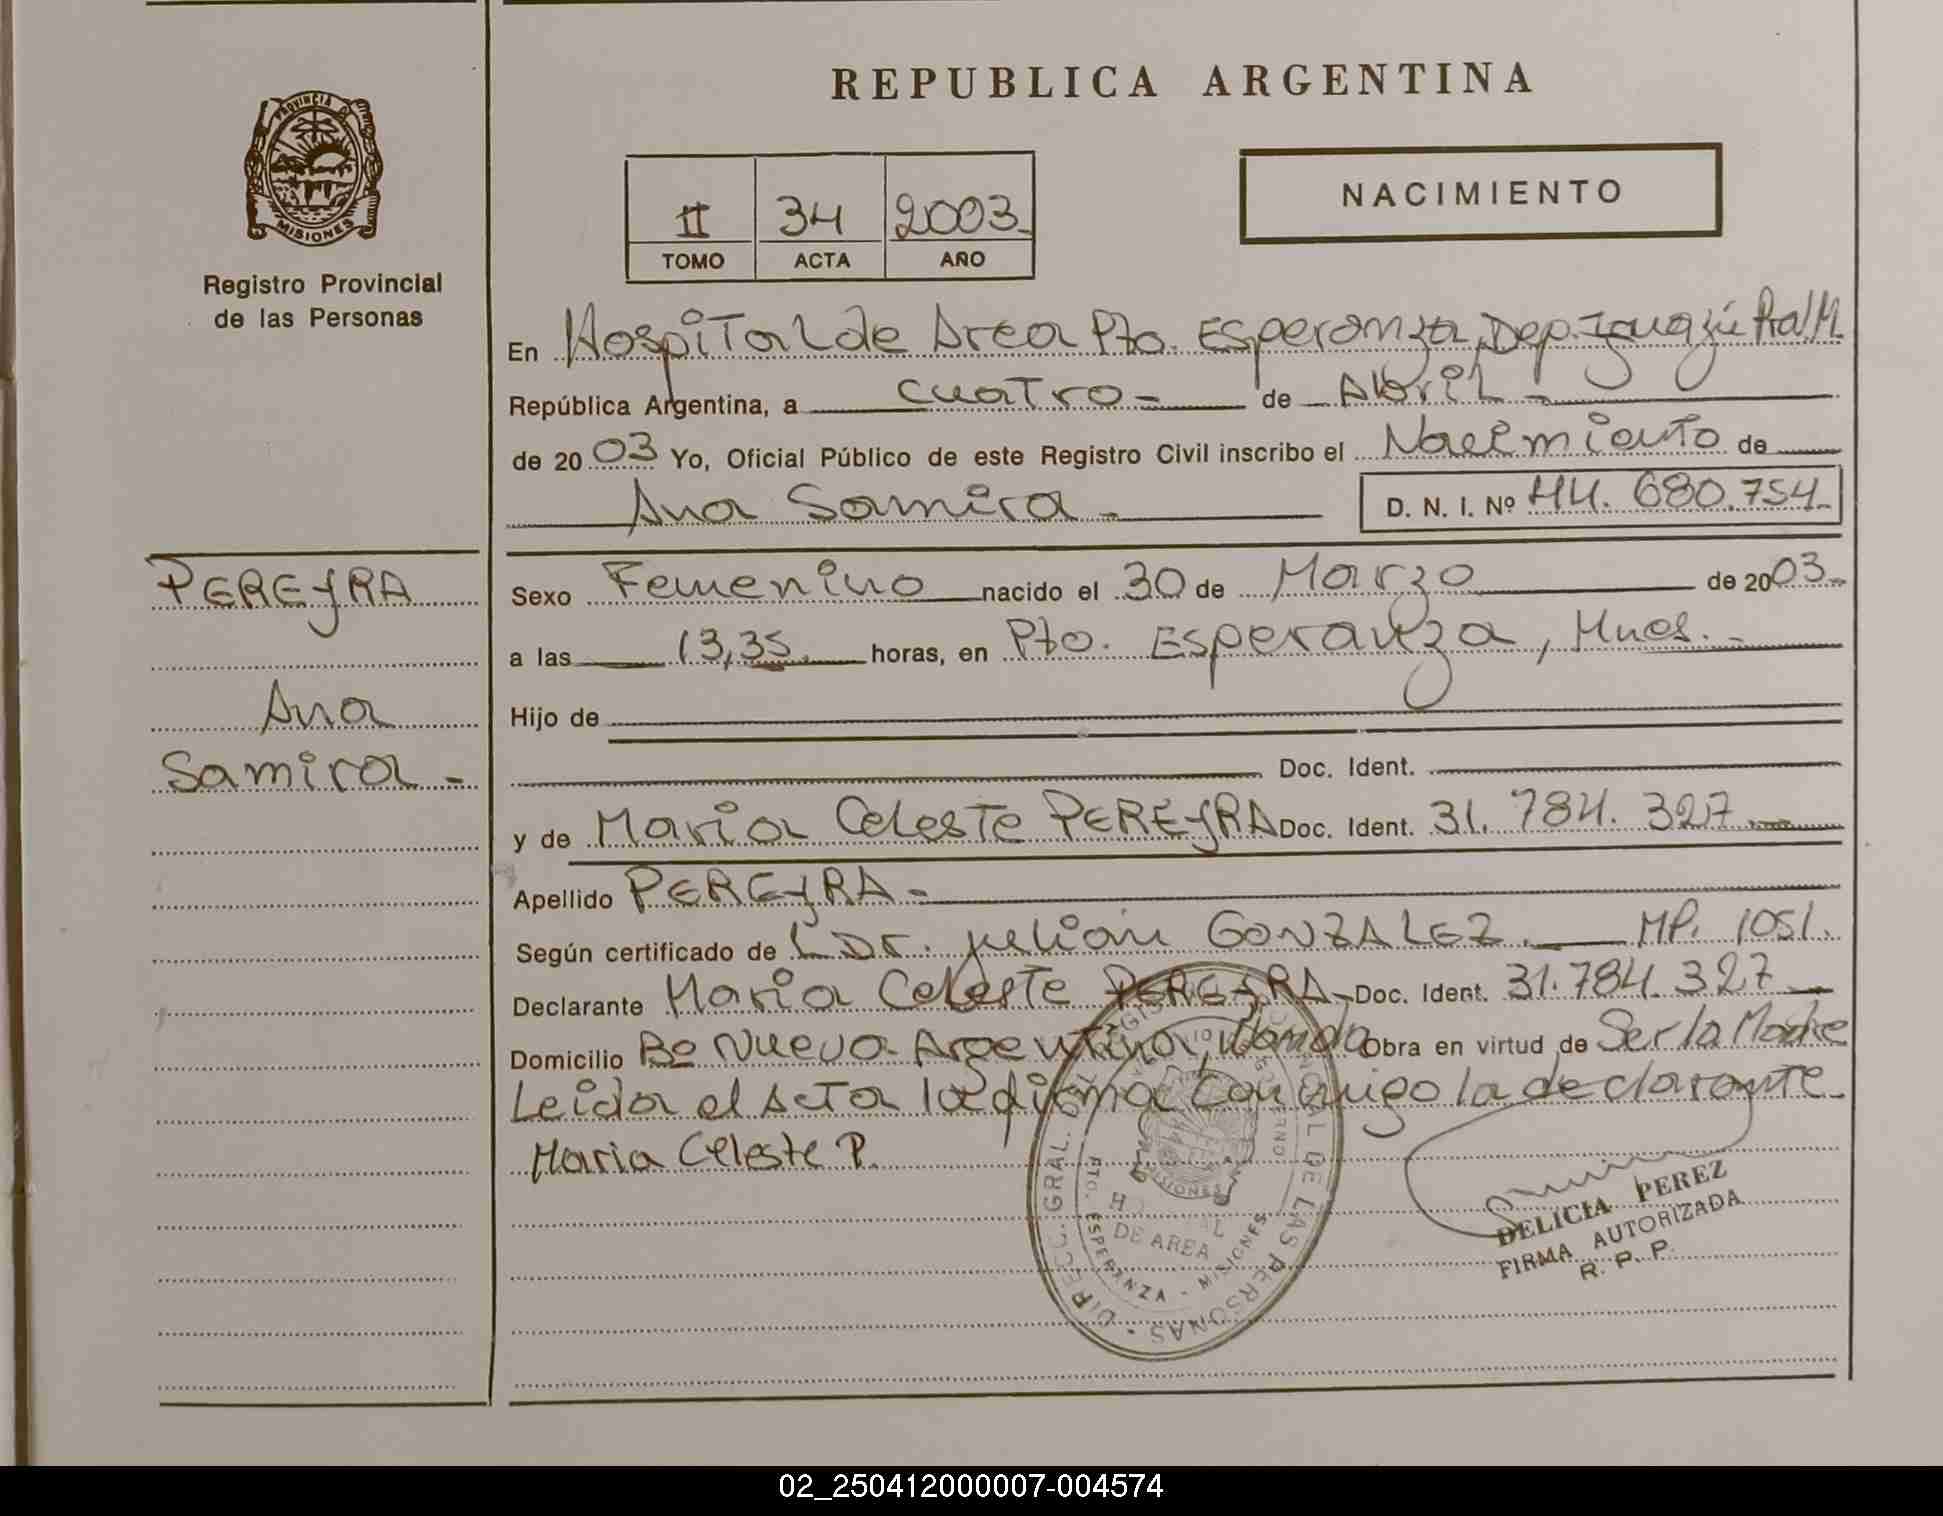 REPUBLICA ARGENTINA
PROVINCIA DE
MISIONES
Registro Provincial
de las Personas
NACIMIENTO
II 34 2003
TOMO ACTA AÑO
En Hospital de Area Pto. Esperanza, Dep. Iguazú
República Argentina, a cuatro - de Abril -
de 2003 Yo, Oficial Público de este Registro Civil inscribo el Nacimiento de
Ana Samira - D. N. I. Nº 44.680.754-
PEREYRA
Ana
Samira -
Sexo Femenino nacido el 30 de Marzo de 2003-
a las 13,35 horas, en Pto. Esperanza, Mnes. -
Hijo de
Doc. Ident.
y de Maria Celeste PEREYRA Doc. Ident. 31.784.327
Apellido PEREYRA -
Según certificado de Dr. Julian GONZALEZ. MP. 1051.
Declarante Maria Celeste PEREYRA- Doc. Ident. 31.784.327
Domicilio Bº Nueva Argentina, Wanda Obra en virtud de Ser la Madre
Leida el Acta la firma Conmigo la declarante-
Maria Celeste P.
DIREC. GRAL. DEL REGISTRO PROVINCIAL DE LAS PERSONAS
HOSPITAL
DE AREA
PTO. ESPERANZA - MISIONES
DELICIA PEREZ
FIRMA AUTORIZADA
R. P. P.
02_250412000007-004574